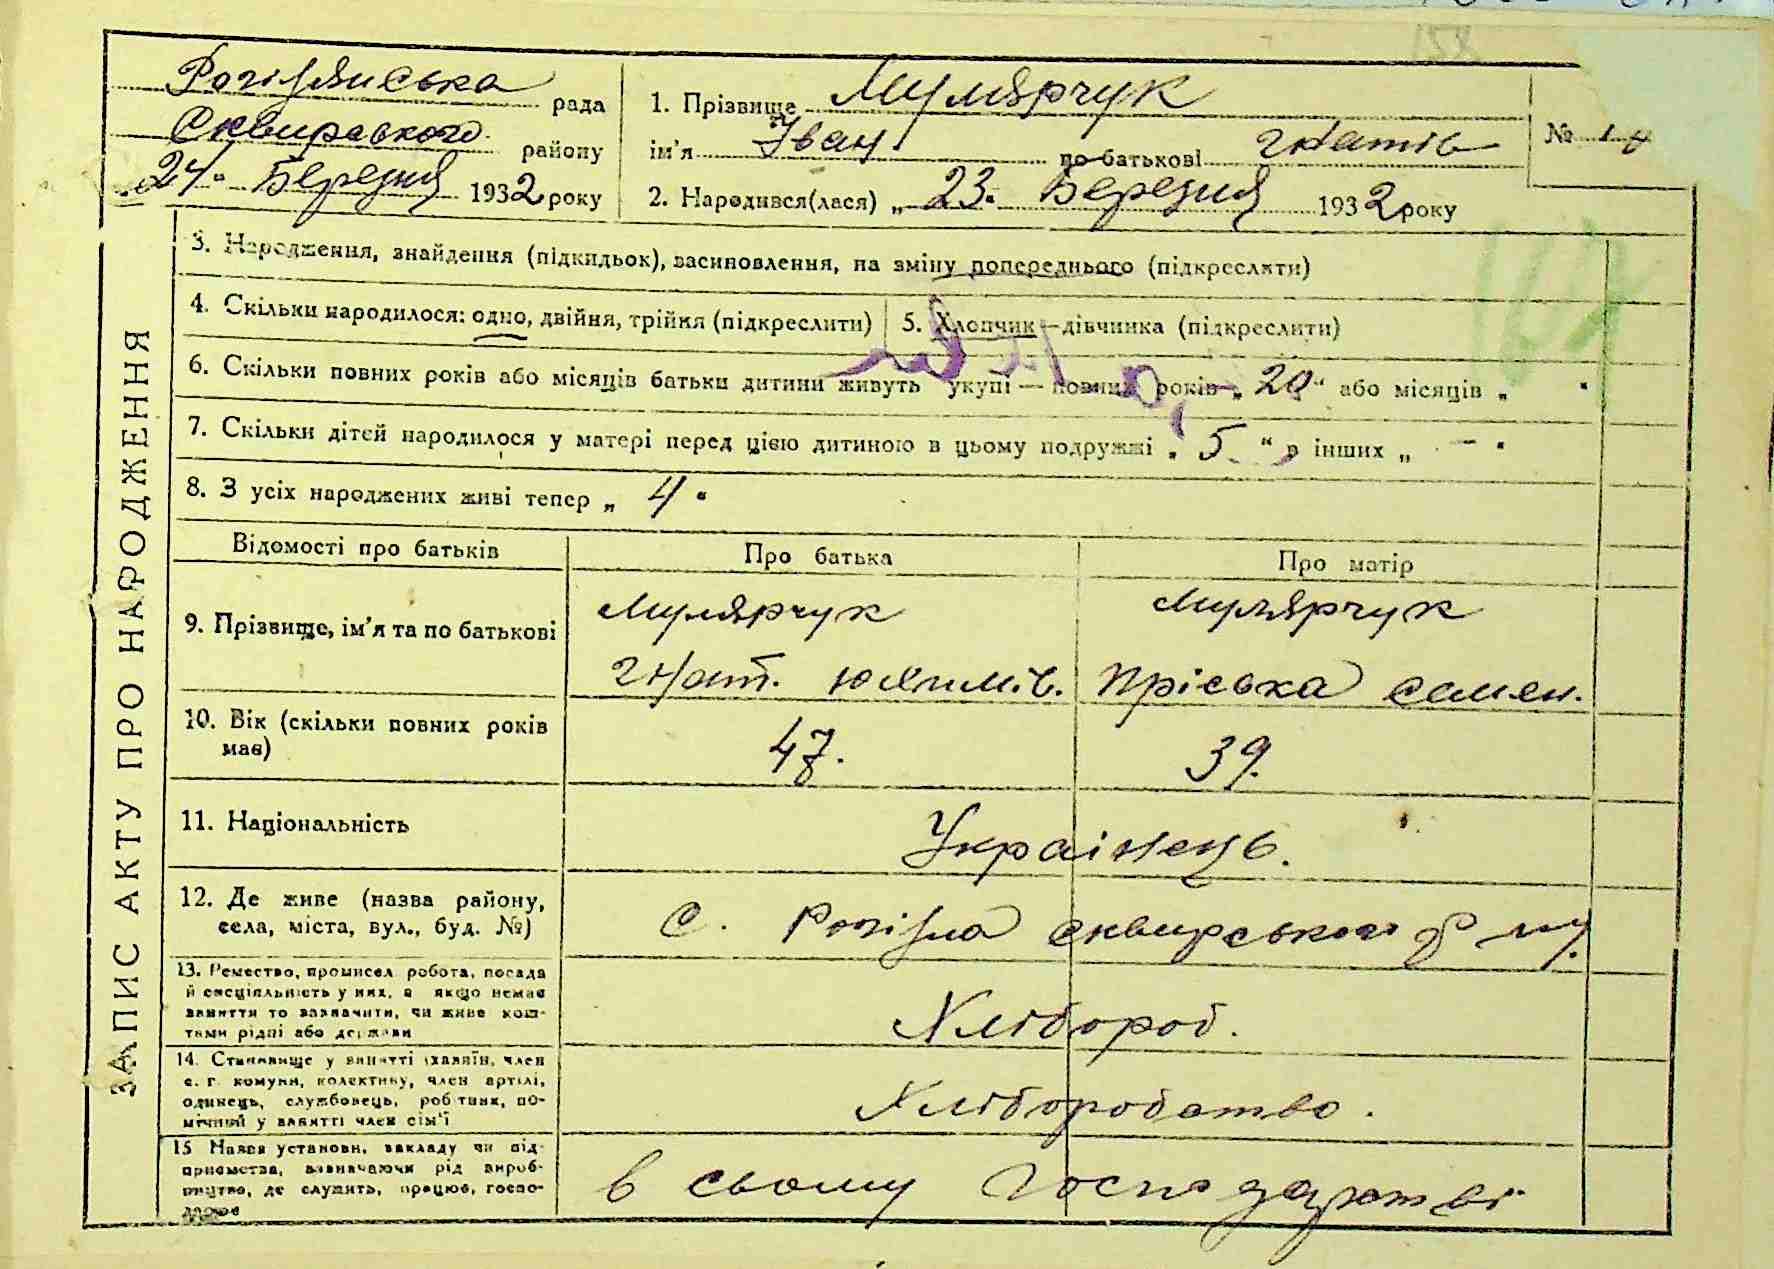 Рогізнянська рада
Сквирського району
„24“ Березня 1932 року
1. Прізвище Мулярчук
ім'я Іван по батькові Гнатів
2. Народився(лася) „23“ Березня 1932 року
№
3. Народження, знайдення (підкидьок), засиновлення, на зміну попереднього (підкреслити)
4. Скільки народилося: одно, двійня, трійня (підкреслити)
5. Хлопчик—дівчинка (підкреслити)
6. Скільки повних років або місяців батьки дитини живуть укупі — повних років „20“ або місяців „ “
7. Скільки дітей народилося у матері перед цією дитиною в цьому подружжі „5“ в інших „—“
8. З усіх народжених живі тепер „4“
ЗАПИС АКТУ ПРО НАРОДЖЕННЯ
Відомості про батьків
Про батька
Про матір
9. Прізвище, ім'я та по батькові
Мулярчук
Гнат. Юхимів.
Мулярчук
Пріська Семен.
10. Вік (скільки повних років
має)
47.
39.
11. Національність
Українець.
12. Де живе (назва району,
села, міста, вул., буд. №)
С. Рогізна Сквирського р-ну.
13. Ремество, промисел робота, посада
й спеціяльність у них, а якщо немає
заняття то зазначити, чи живе кош-
тами рідні або держави
Хлібороб.
14. Становище у занятті (хазяїн, член
с. г. комуни, колективу, член артілі,
одинець, службовець, робітник, по-
мічний у занятті член сім'ї
Хліборобство.
15 Назва установи, закладу чи під-
приємства, зазначаючи рід вироб-
ництва, де служить, працює, госпо-
дарює
в сьому господарстві